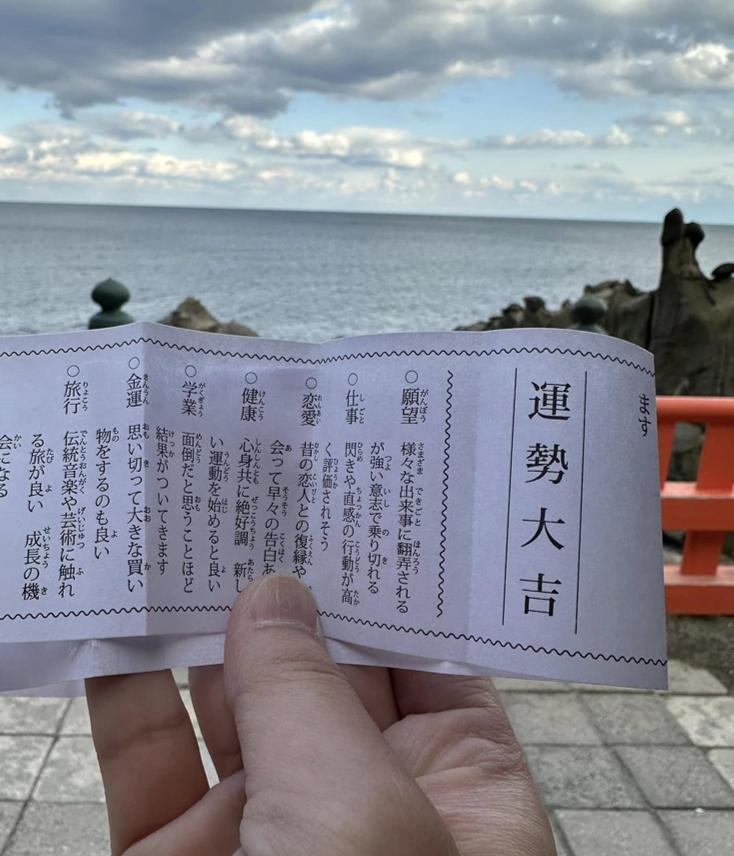 ます
運勢大吉
○願望 様々な出来事に翻弄される
が強い意志で乗り切れる
○仕事 閃きや直感の行動が高
く評価されそう
○恋愛 昔の恋人との復縁や
会って早々の告白あ
○健康 心身共に絶好調 新し
い運動を始めると良い
○学業 面倒だと思うことほど
結果がついてきます
○金運 思い切って大きな買い
物をするのも良い
○旅行 伝統音楽や芸術に触れ
る旅が良い 成長の機
会になる